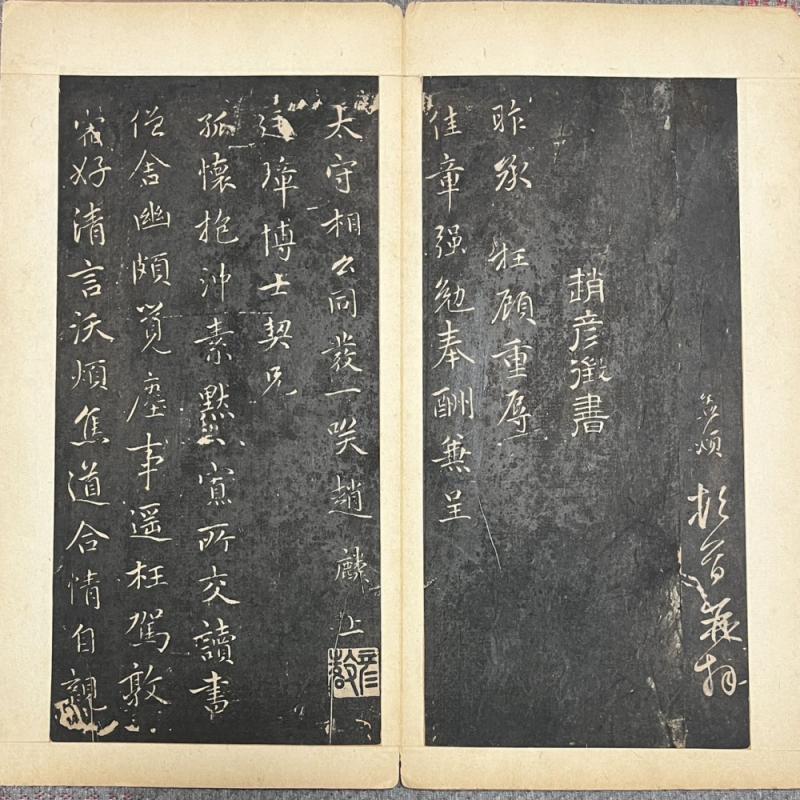 頓首拜
趙彦徵書
昨承 枉顧重辱
佳章强勉奉酬兼呈
太守相公同發一咲趙麟上
璋博士契兄
孤懷抱沖素默寡所交讀書
僧舍幽頗覺塵事遥枉駕敦
宿好清言沃煩焦道合情自親